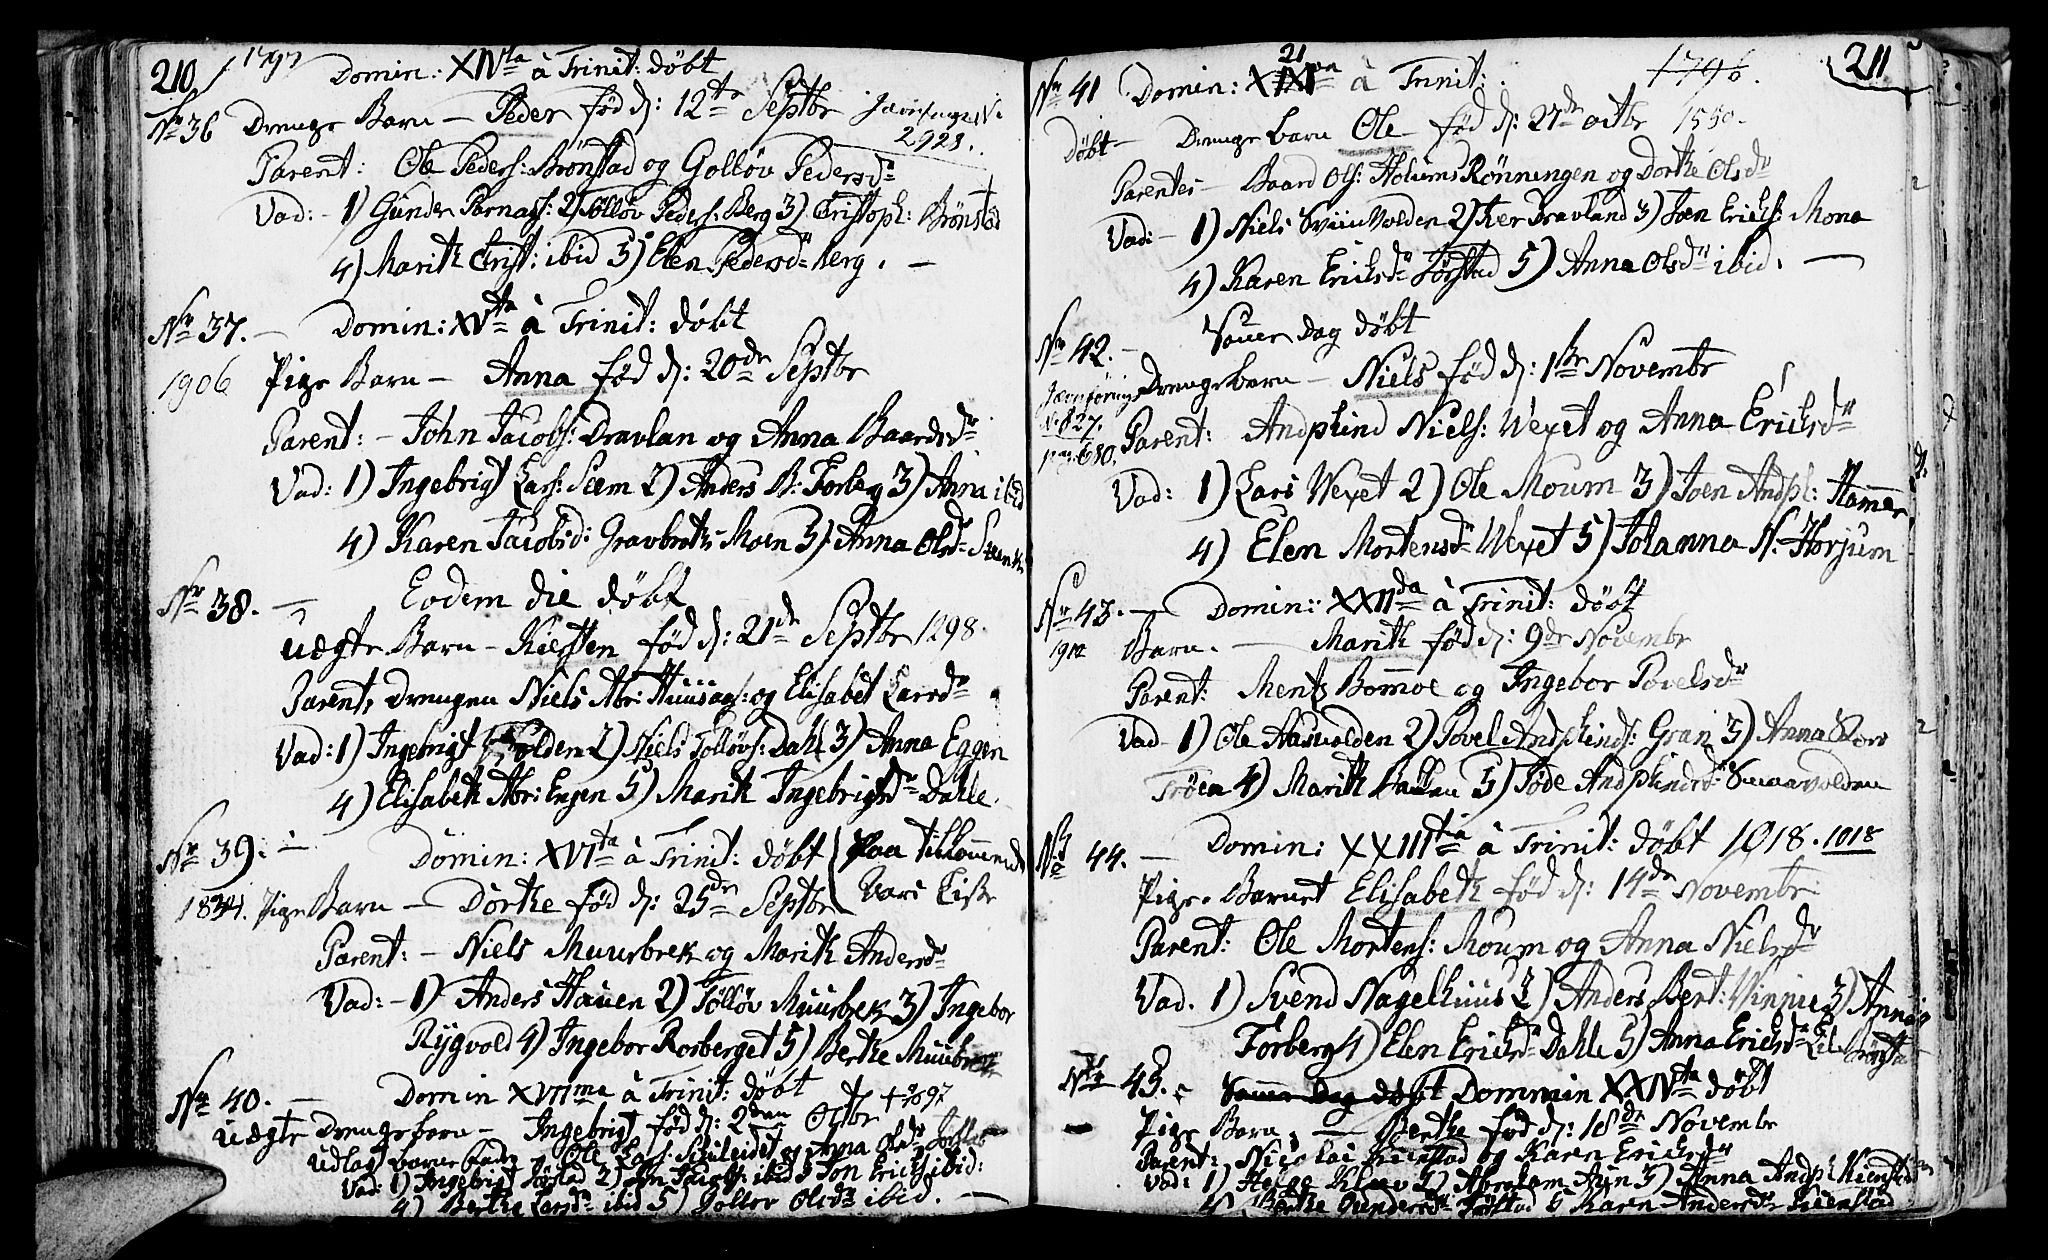 210 1797 Domin: XIVta à Trinit: döbt
No 36 Drenge Barn – Peder föd d: 12te Septbr
2923.
Parent: Ole Peders: Brönstad og Gollöv Pedersdr
Vad: – 1) Gunder Parnass: 2) Tollöv Peders: Berg 3) Cristoph: Brönstad
4) Marith Crist: ibid 5) Elen Pedersdr Berg. –
No 37. – Domin: XVta à Trinit: döbt
1906 Pige Barn – Anna föd d: 20de Septbr
Parent: – John Jacobs: Dravlan og Anna Baardsdr
Vad: 1) Ingebrigt Lars: Seem 2) Anders A: Forberg 3) Anna ibid
4) Karen Jacobsd: Gravbrøts Moen 5) Anna Olsdr
No 38. – Eodem die döbt
Uægte Barn – Kiersten föd d: 21de Septbr 1298.
Parent, Drengen Niels Abr: Huusaas: og Elisabet Larsdr
Vad: 1) Ingebrigt 2) Niels Tollövs: Dahl 3) Anna Eggen
4) Elisabeth Abr: Engen 5) Marith Ingebrigtsdr Dahle.
No 39: – Domin: XVIta à Trinit: döbt (Paa tilkommende
1834. Pige Barn – Dorthe föd d: 25de Septbr Vari Liste
Parent: – Niels Muurbrek og Marith Andersdr
Vad: – 1) Anders Hauen 2) Tollöv Muurbrek 3) Ingebor
Rygvold 4) Ingebor Rorberget 5) Berthe Muurbrek
No 40. – Domin XVIIma à Trinit: döbt
Uægte Drengebarn – Ingebrigt föd d: 2den Octbr † 1897
Udlagt barnefader – Ole Lars: og Anna Olsdr
Vad: 1) Ingebrigt Jörstad 2) Jacobs: ibid 3) Jon Ericks: ibid:
4) Berthe Larsdr ibid 5) Gollov Olsdr ibid. –
211
No 41 Domin: 21 à Trinit: 1796.
Döbt – Drenge barn Ole föd d: 27de octbr 1550.
Parentes – Baard Ols: Holums Rönningen og Dorthe Olsdr
Vad: – 1) Niels Sviin Volden 2) Peer Dravland 3) Joen Ericks: Mona
4) Karen Ericksdr Jörstad 5) Anna Olsdr ibid. –
No 42. – Sauer Dag döbt
Drengebarn – Niels föd d: 1ste Novembr
No 827.
pag. 680. Parent: Andphind Niels: Wexet og Anna Ericksdr
Vad: 1) Lars Wexet 2) Ole Moum 3) Joen Andph: Hammer
4) Elen Mortensdr Wexet 5) Johanna N: Horjum
No 43. – Domin: XXIIda à Trinit: döbt
1912 Barn. – Marith föd d: 9de Novembr
Parent: Ments Bommoe og Ingebor Povelsdr
Vad – 1) Ole Aasvolden 2) Povel Andphinds: Gran 3) Anna
Tröen 4) Marith 5) Töde Andphindsdr Smaavolden
No 44. – Domin: XXIIItia à Trinit: döbt 1018. 1018
Pige-Barnet Elisabeth föd d: 14de Novembr
Parent: Ole Mortens: Moum og Anna Nielsdr
Vad. 1) Svend Nagelhuus 2) Anders Bert: Vinnie 3) Anna
Forberg 4) Elen Ericksdr Dahle 5) Anna Ericksdr
No 45. – Sauer Dag döbt Dommin XXIVta döbt
– Pige Barn. – Berthe föd d: 18de Novembr
Parent: Nicolai Kienstad og Karen Ericksdr
Vad: 1) Helge Klev 2) Abraham 3) Anna Andph: Kienstad
4) Berthe Gundersdr Jörstad 5 Karen Andersdr Kienstad